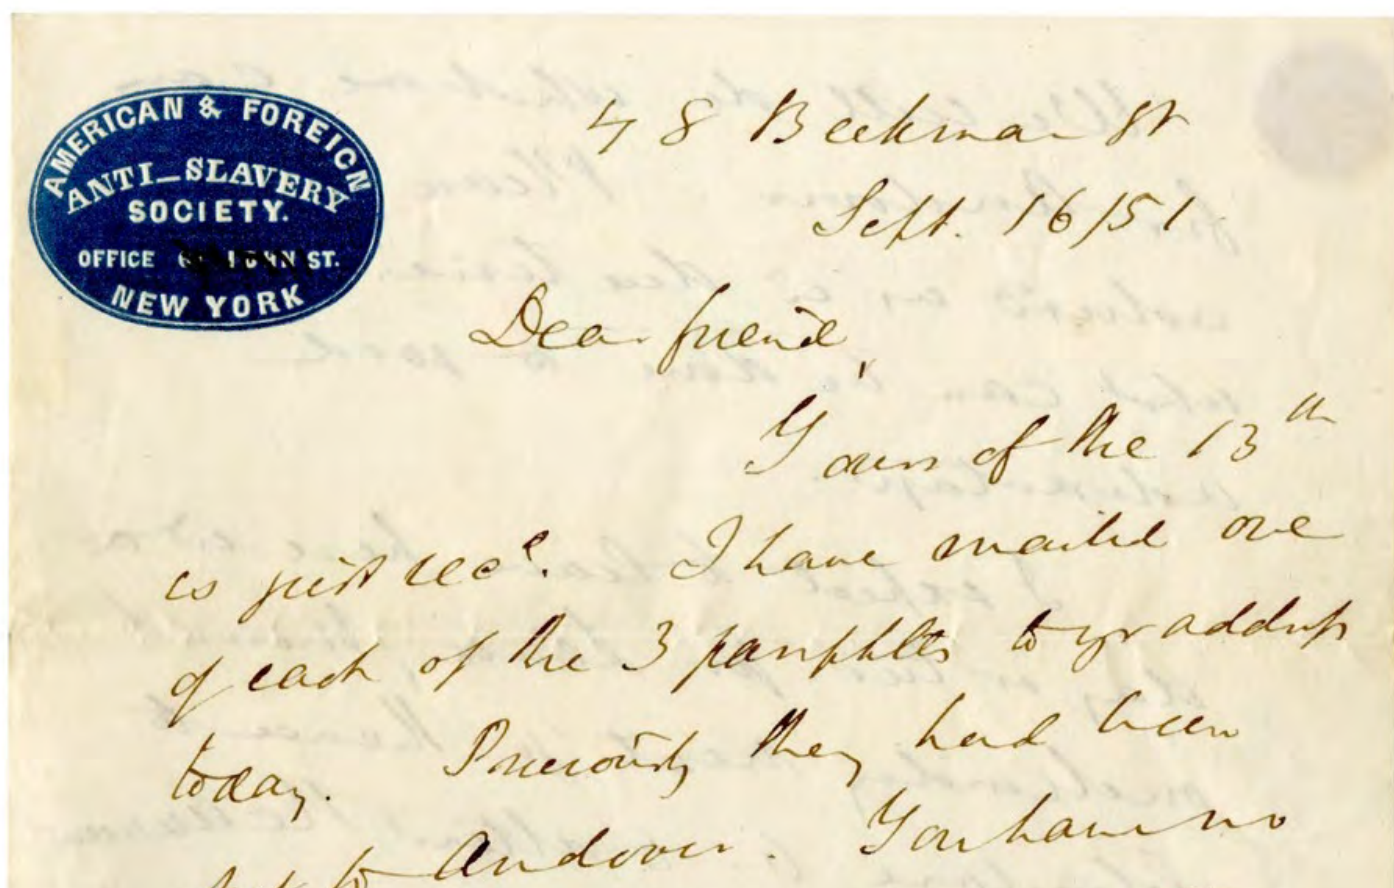 AMERICAN & FOREIGN
ANTI-SLAVERY
SOCIETY.
OFFICE JOHN ST.
NEW YORK
48 Beekman St
Sept. 16/51
Dear friend,
Yours of the 13th
is just recd. I have mailed one
of each of the 3 pamphlets to yr address
today. Previously they had been
to Andover. You have no